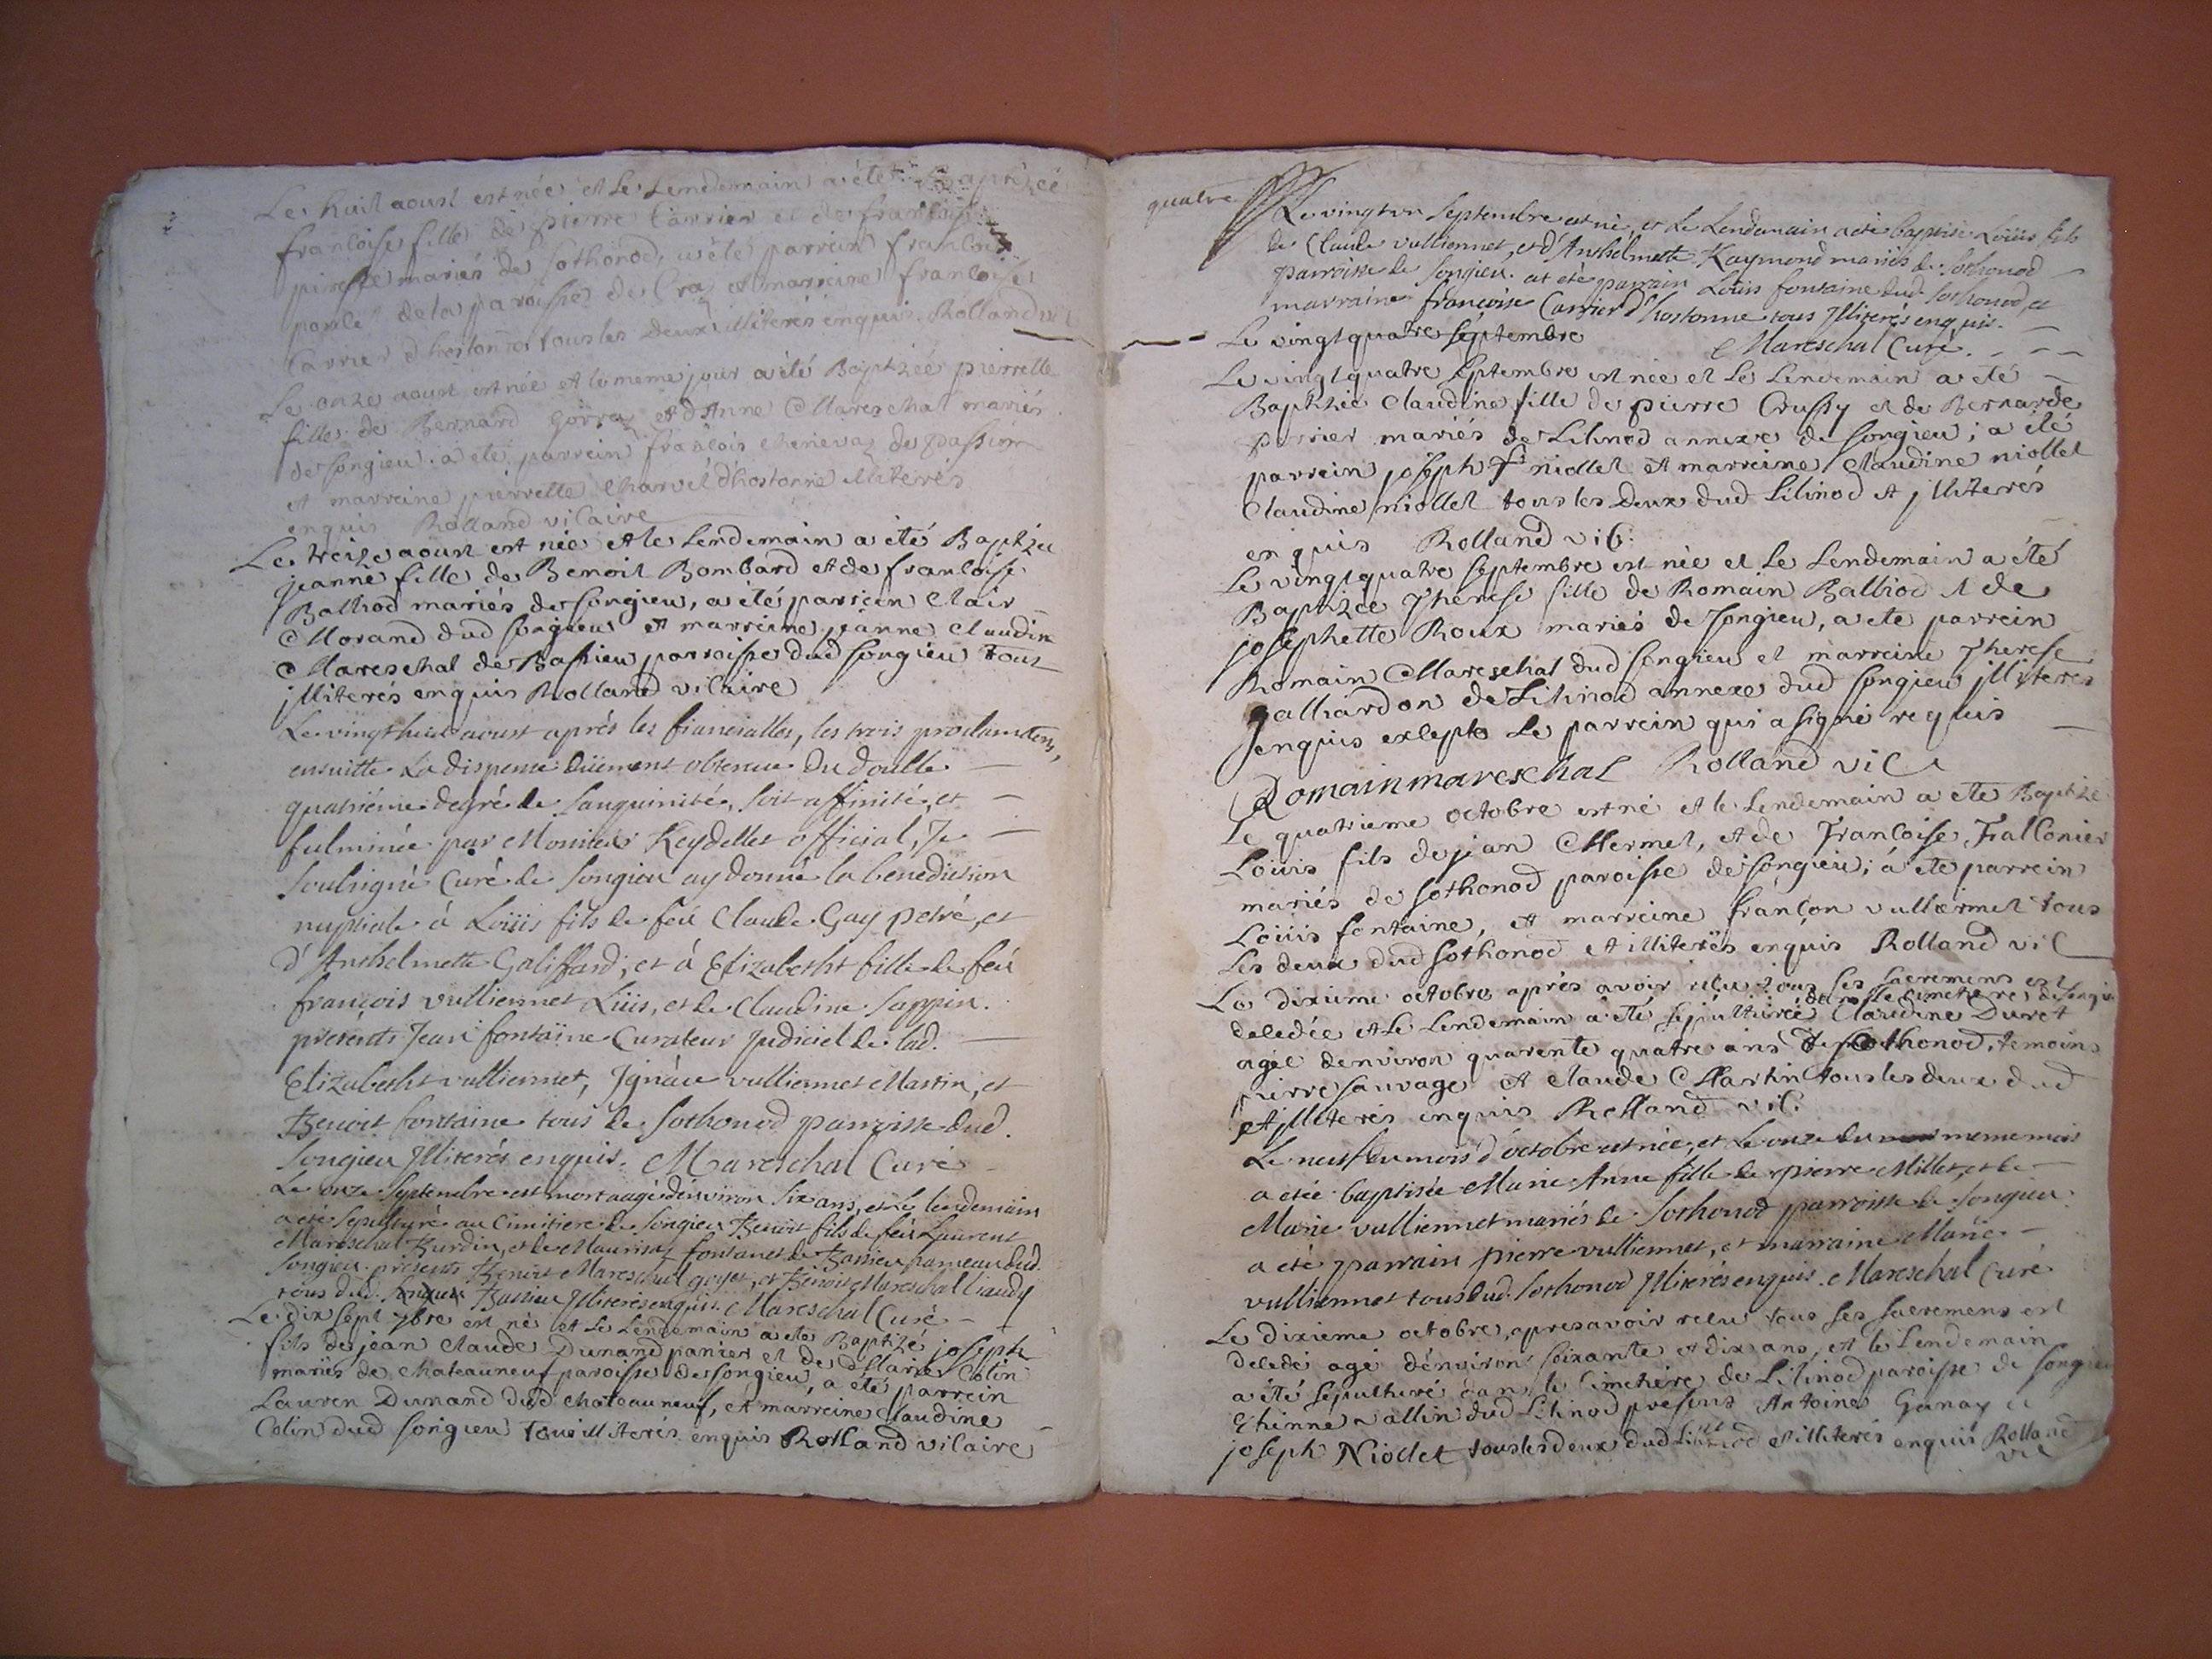 Le huit aoust est née et Le Lendemain a été Baptizée
francoise fille de pierre Carrier et de francoise
mariés de sothonod, a été parrein francois
de la paroisse de Craz et marreine francoise
Carrier d'hostonne tous les deux illiterés enquis. Rolland vic
Le onze aoust est née et le meme jour a été Baptizée pierrette
fille de Bernard Gorraz et d'Anne Mareschal mariés
de songieu. a eté parrein francois chenevaz de passin
et marreine pierrette charvet d'hostonne illiterés
enquis Rolland vicaire
Le treize aoust est née et le Lendemain a été Baptizée
jeanne fille de Benoit Bombard et de francoise
Balliod mariés de songieu, a été parrein Clair
Morand dud songieu et marreine jeanne claudine
Mareschal de Bassieu parroisse dud songieu tous
jlliterés enquis Rolland vicaire
Le vingthuit aoust après les fiancailles, les trois proclamations,
ensuitte La dispense düement obtenue du double
quatriéme degré de sanguinité, soit affinité, et
fulminée par Monsieur Reydellet official, Je
soubsigné Curé de songieu ay donné la benediction
nuptiale à Loüis fils de feu Claude Gay petré, et
d'Anthelmette Galiffard; et à Elizabetht fille de feu
françois vulliennet Lüis, et de Claudine Sappin.
présents Jean fontaine Curateur Judiciel de lad.
Elizabetht vulliennet, Jgnace vulliennet Martin, et
Benoit fontaine tous de sothonod parroisse dud.
songieu Jlliterés enquis. Mareschal Curé
Le onze septembre est mort aagé denviron six ans, et le lendemain
a été sepulturé au Cimitiere de songieu Benoit fils de feu Laurent
Mareschal Burdin, et de Maurisaz fontanet de Bassieu hameau dud.
songieu. présents Benoit Mareschal goyet, et Benoit Mareschal Claudy
tous dud. songieu Bassieu Jlliterés enquis. Mareschal Curé
Le dix sept 7bre est né et Le Lendemain a ete Baptizé joseph
fils de jean claude Dunand panier et de Marie Colin
mariés de chateauneuf paroisse de songieu, a eté parrein
Lauren Dunand dud chateauneuf, et marreine claudine
Colin dud songieu tous illiterés enquis Rolland vicaire
quatre
Le vingtun septembre est né, et Le Lendemain a été baptisé Loüis fils
de Claude vulliennet, et d'Anthelmette Raymond mariés de sothonod
parroisse de songieu. at été parrain Loüis fontaine dud. sothonod, et
marraine françoise Carrier d'hostonne tous Jlliterés enquis.
Le vingtquatre septembre Mareschal Curé.
Le vingtquatre septembre est née et Le Lendemain a eté
Baptizée claudine fille de pierre Crussy et de Bernarde
perrier mariés de Lilinod annexe de songieu; a été
parrein joseph niollet et marreine claudine niollet
claudine niollet tous les deux dud Lilinod et jlliterés
enquis Rolland vic:
Le vingtquatre septembre est née et Le Lendemain a été
Baptizée Therese fille de Romain Balliod et de
josephette Roux mariés de songieu, a ete parrein
Romain Mareschal dud songieu et marreine Therese
galliardon de Lilinod annexe dud songieu jlliteres
enquis excepte Le parrein qui a signé requis
Romain mareschal Rolland vic
Le quatrieme octobre est né et le Lendemain a ete Baptizé
Loüis fils de jean Mermet, et de Francoise Falconier
mariés de sothonod paroisse de songieu; a ete parrein
Loüis fontaine, et marreine françon vulliermet tous
Les deux dud sothonod et illiterés enquis Rolland vic
Le dixieme octobre après avoir reçu tous ses sacremens est
decedée et Le Lendemain a été sepulturée dans le cimetiere de songieu Claudine Duret
agée denviron quarente quatre ans de sothonod. temoins
pierre sauvage et claude Martin tous les deux dud
et jlliterés enquis Rolland vic.
Le neuf du mois d'octobre est née, et Le onze du mois meme mois
a etée baptisée Marie Anne fille de pierre Millet, et de
Marie vulliennet mariés de sothonod parroisse de songieu.
a eté parrain pierre vulliennet, et marraine Marie
vulliennet tous dud. sothonod Jlliterés enquis. Mareschal Curé
Le dixieme octobre, apres avoir recu tous ses sacremens est
decedé agé d'environ soixante et dix ans, et le Lendemain
a été sepulturé dans le cimetiere de Lilinod paroisse de songieu
Ethienne vallin dud Lilinod presens Antoine Ganay et
joseph Niollet tous les deux dud Lilinod et illiterés enquis Rolland
vic